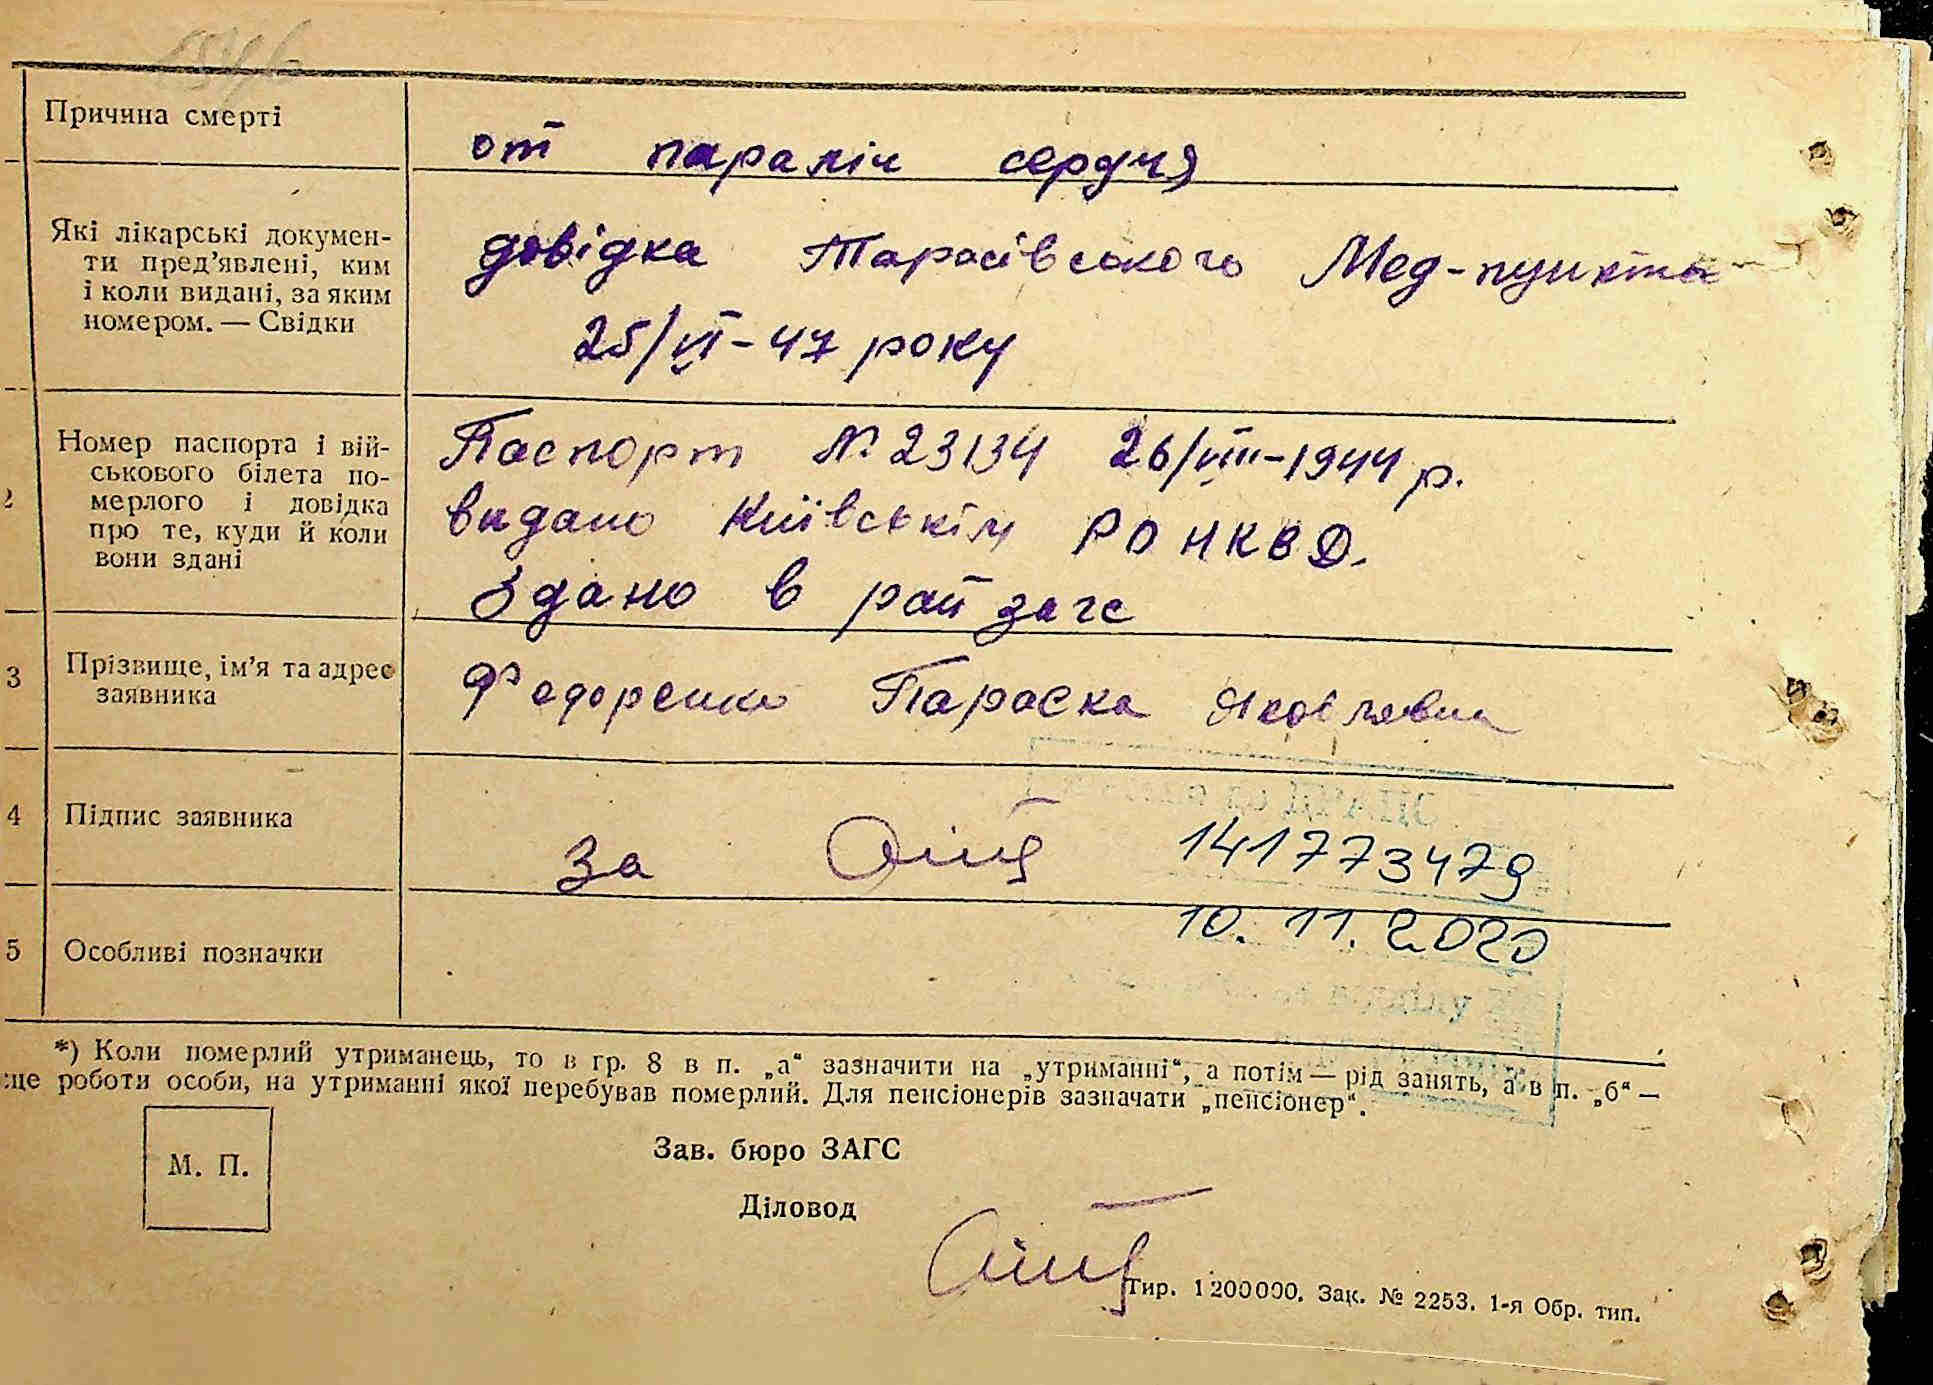 Причина смерті
от параліч сердця
Які лікарські докумен-
ти пред’явлені, ким
і коли видані, за яким
номером. — Свідки
довідка Тарасівського Мед-пункта
25/VI-47 року
Номер паспорта і вій-
ськового білета по-
мерлого і довідка
про те, куди й коли
вони здані
Паспорт № 23134 26/VIII-1944 р.
видано Київськім РО НКВД.
Здано в райзагс
3
Прізвище, ім’я та адрес
заявника
Федоренко Параска Яковлевна
4
Підпис заявника
за
141773479
10.11.2020
5
Особливі позначки
*) Коли померлий утриманець, то в гр. 8 в п. „а“ зазначити на „утриманні“, а потім — рід занять, а в п. „б“ —
це роботи особи, на утриманні якої перебував померлий. Для пенсіонерів зазначати „пенсіонер“.
М. П.
Зав. бюро ЗАГС
Діловод
Тир. 1200000. Зак. № 2253. 1-я Обр. тип.